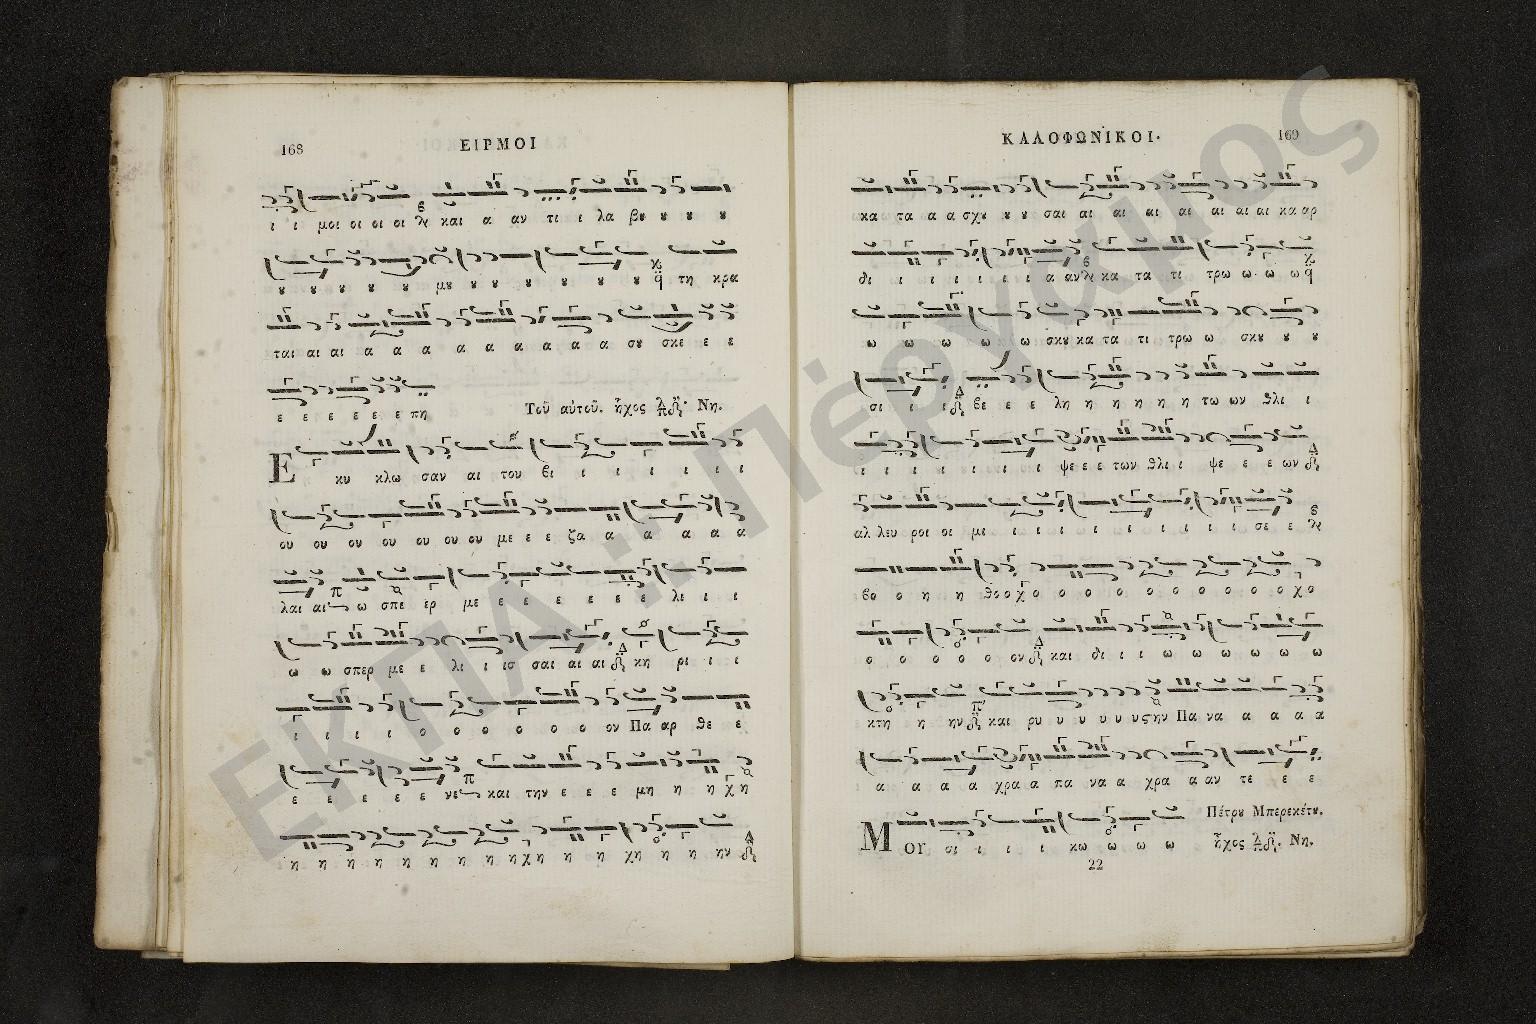 168
ΕΙΡΜΟΙ
ι ι μοι οι οι οι και α αν τι ι λα βȣ ȣ ȣ ȣ
ȣ ȣ ȣ ȣ ȣ μȣ ȣ ȣ ȣ ȣ ȣ ȣ ȣ τη κρα
ται αι αι α α α α α α α α α σȣ σκε ε ε
ε ε ε ε ε ε πη Τοῦ αὐτοῦ. ἦχος Νη.
Ε κυ κλω σαν αι του βι ι ι ι ι ι ι
ου ου ου ου ου ου ου με ε ε ζα α α α α α
λαι αι ω σπε ερ με ε ε ε ε ε ε λι ι ι
ω ω σπερ με ε λι ι ισ σαι αι αι κη ρι ι ι
ι ι ι ι ο ο ο ο ο ο ον Πα αρ θε ε
ε ε ε ε ε νε και την ε ε ε μη η η χη
η η η η η η η η η χη η η χη η η ην
ΚΑΛΟΦΩΝΙΚΟΙ.
169
κα τα α α σχȣ ȣ ȣ σαι αι αι αι αι αι αι αι κα αρ
δι ι ι ι ι ι ι α αν κα τα τι τρω ω ω ω
ω ω ω ω ω σκȣ κα τα τι τρω ω σκȣ ȣ ȣ
σι ι ι βε ε ε λη η η η η η τω ων θλι ι
ι ι ι ι ι ι ι ι ψε ε ε των θλι ι ψε ε ε ων
αλ λευ ροι οι μι ι ι ι ι ι ι ι ι ι ι σε ε
βο ο η η θο ο χο ο ο ο ο ο ο ο ο ο χο
ο ο ο ο ο ον και δι ι ι ω ω ω ω ω ω
κτη η ην και ρυ υ υ υ υ υς ην Πα να α α α α
α α α α χρα α πα να α χρα α αν τε ε ε
Μ ου σι ι ι ι κω ω ω ω Πέτρȣ Μπερεκέτȣ.
ἦχος Νη.
22
ΕΚΠΑ: Πέργαμος